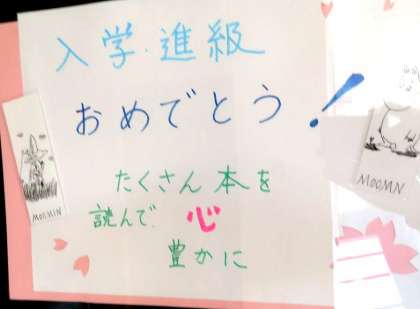 入学・進級
おめでとう!
たくさん本を
読んで 心
豊かに
MOOMIN
MOOMIN